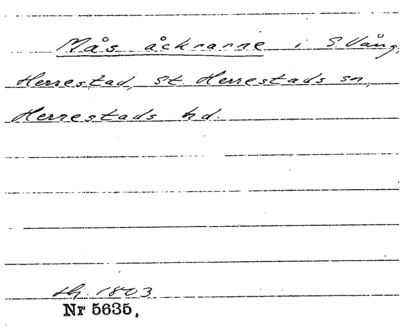 Mås åckrarne i S. Vång,
Herrestad, St Herrestads sn,
Herrestads hd.
1803
Nr 5635,